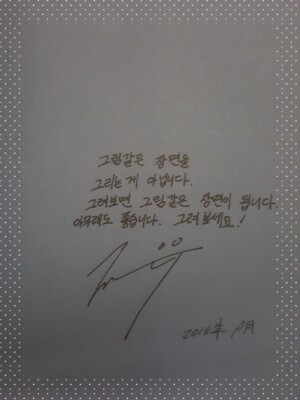 그림같은 장면을
그리는 게 아닙니다.
그려보면 그림같은 장면이 됩니다.
아무래도 좋습니다. 그려보세요!
2016年 月